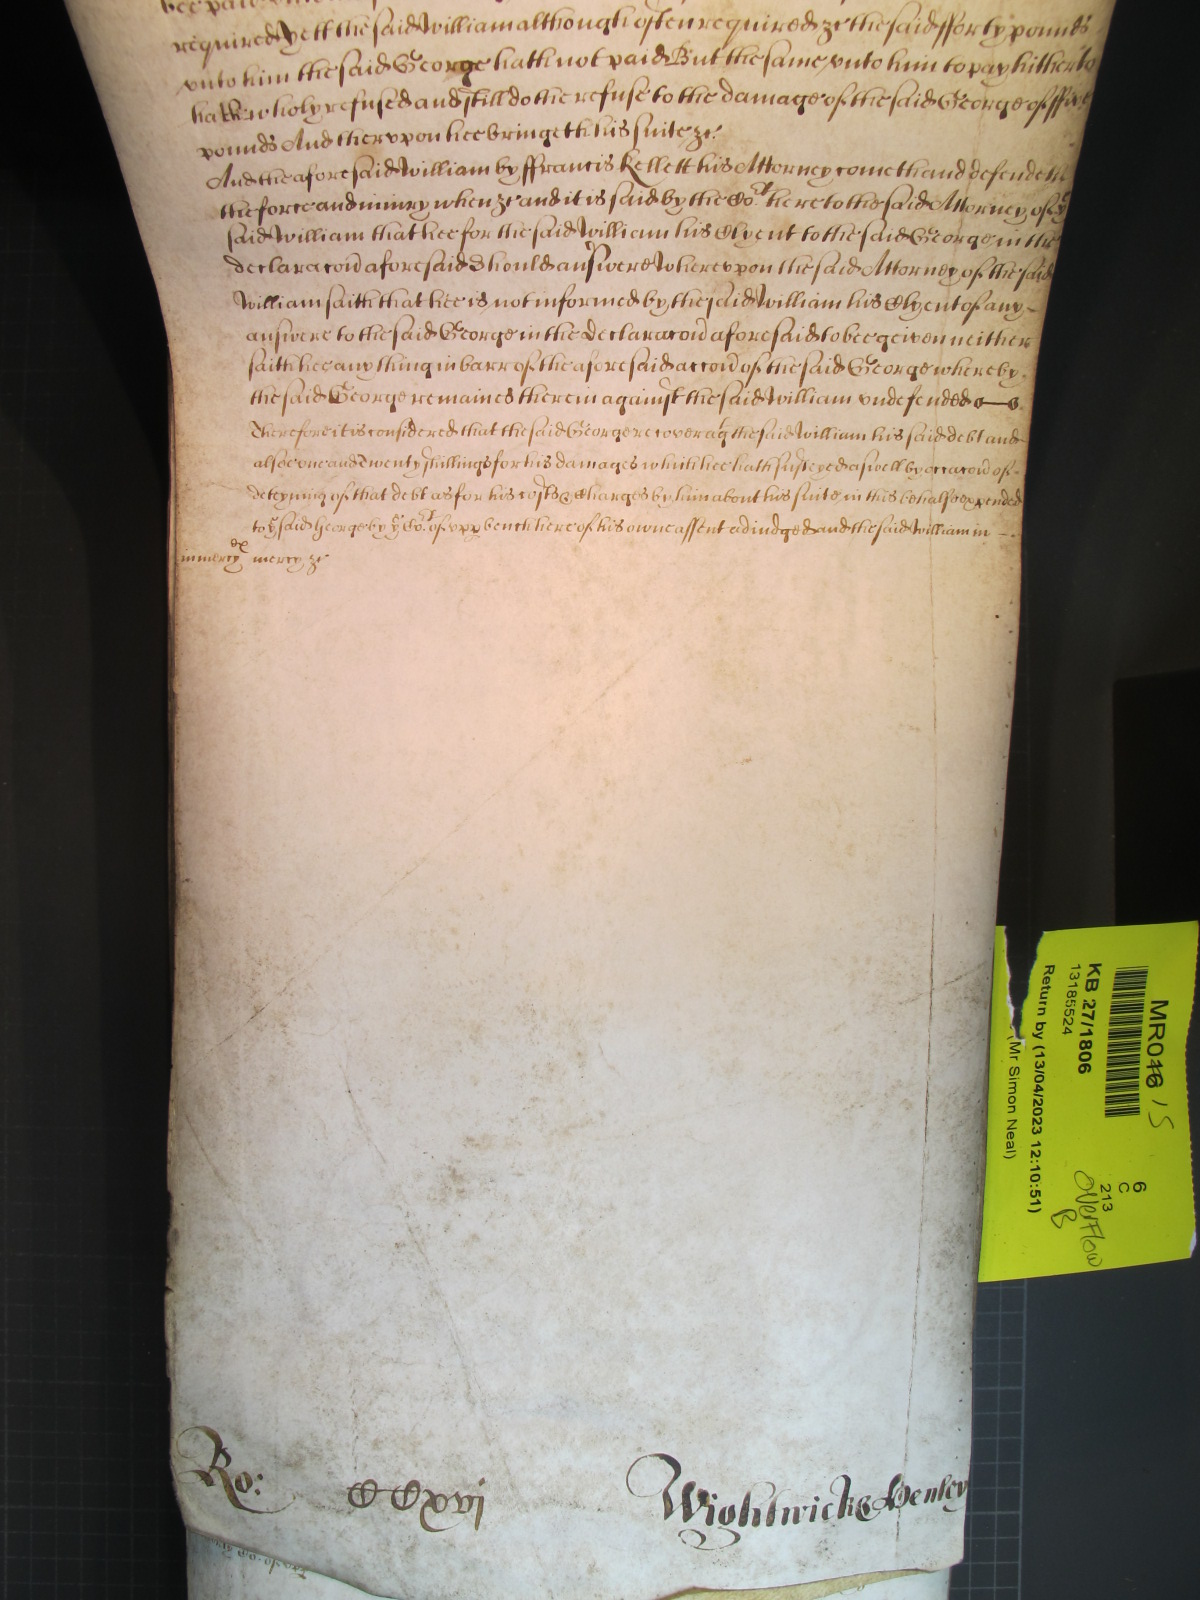 required yett the said William although often required &c the said fforty pounds
vnto him the said George hath not paid But the same vnto him to pay hitherto
hath wholy refused and still dothe refuse to the damage of the said George of ffive
pounds And therevpon hee bringeth his suite &c
And the aforesaid William by ffrancis Kellett his Attorney cometh and defendeth
the force and iniury when &c and it is said by the Co:rt here to the said Attorney of ye
said William that hee for the said William his Clyent to the said George in the
declaracon aforesaid should answere Wherevpon the said Attorney of the said
William saith that hee is not informed by the said William his Clyent of any
answere to the said George in the declaracon aforesaid to bee geiven neither
saith hee any thing in barr of the aforesaid accon of the said George whereby
the said George remaines therein against the said William vndefended
Therefore it is considered that the said George recover agt the said William his said debt and
alsoe one and Twenty shillings for his damages which hee hath susteyned aswell by occacon of
deteyning of that debt as for his costs & charges by him about his suite in this behalfe expended
to ye said George by ye Co:rt of vpp bench here of his owne assent adiudged and the said William in
in mercy mercy &c
Ro: CCxvi Wightwick & Henley
MR046 15
KB 27/1806
13185524
Return by (13/04/2023 12:10:51)
(Mr Simon Neal)
6
C
213
overflow
B